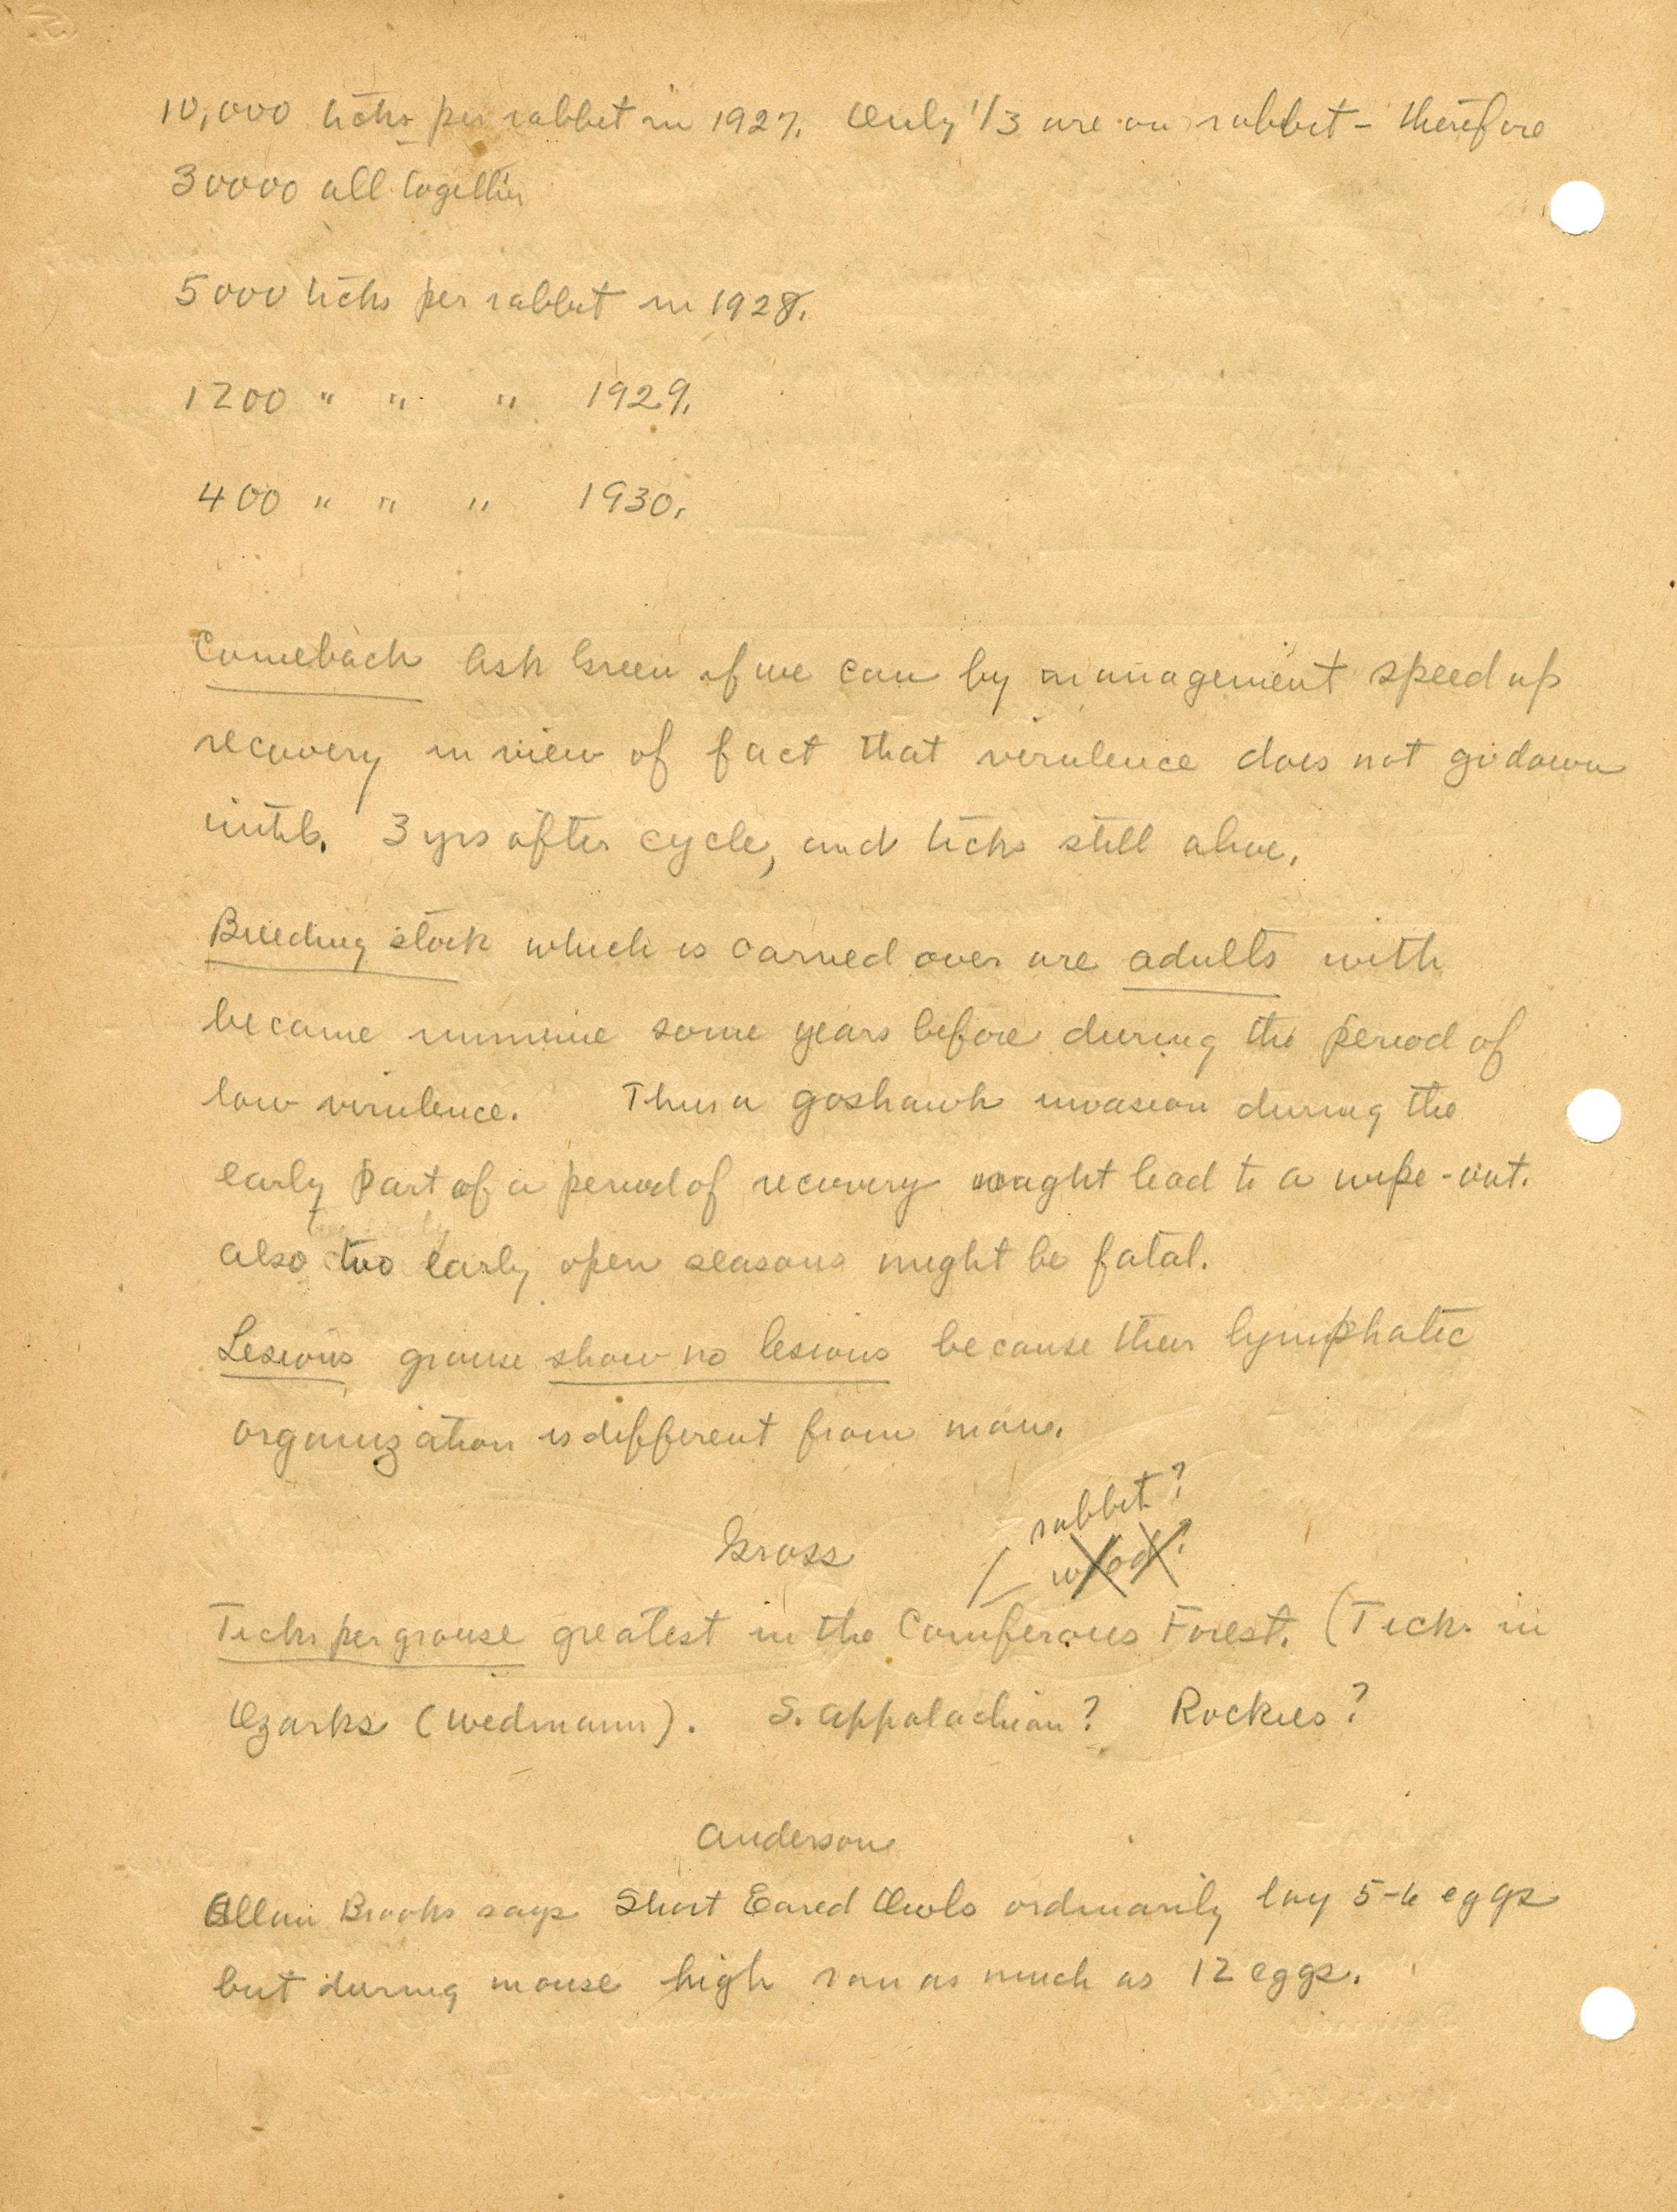 10,000 ticks per rabbit in 1927. Only 1/3 are on rabbit – therefore
30000 all together
5000 ticks per rabbit in 1928.
1200 " " " 1929.
400 " " " 1930.
Comeback Ask Green if we can by management speed up
recovery in view of fact that virulence does not go down
until. 3 yrs after cycle, and ticks still alive.
Breeding stock which is carried over are adults with
became immune some years before during the period of
low virulence. Thus a goshawk invasion during the
early part of a period of recovery might lead to a wipe-out.
also too early open seasons might be fatal.
Lesions grouse show no lesions because their lymphatic
organization is different from man.
rabbit?
Gross wood?
Ticks per grouse greatest in the Coniferous Forest. (Tick in
Ozarks (Wedmann). S. Appalachian? Rockies?
Anderson
Allan Brooks says Short Eared Owls ordinarily lay 5-6 eggs
but during mouse high ran as much as 12 eggs.